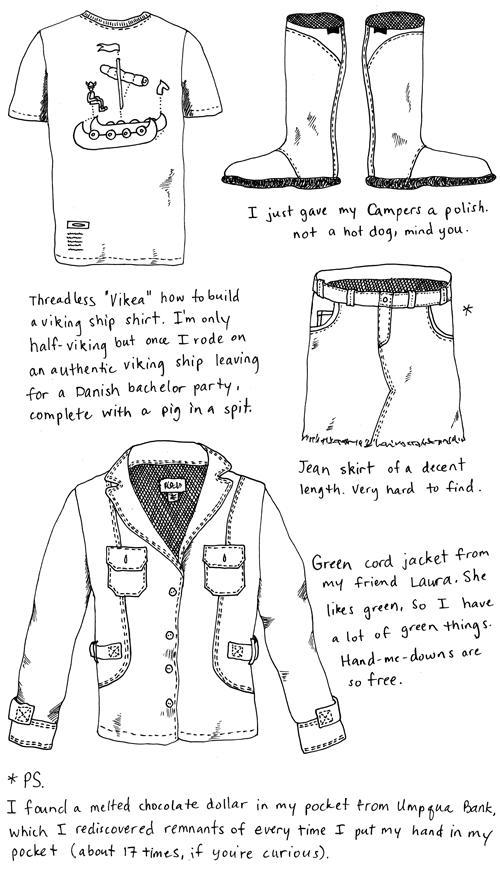 I just gave my Campers a polish.
not a hot dog, mind you.
Threadless "Vikea" how to build
a viking ship shirt. I'm only
half-viking but once I rode on
an authentic viking ship leaving
for a Danish bachelor party,
complete with a pig in a spit.
*
Jean skirt of a decent
length. Very hard to find.
Green cord jacket from
my friend Laura. She
likes green, so I have
a lot of green things.
Hand-me-downs are
so free.
* PS.
I found a melted chocolate dollar in my pocket from Umpqua Bank,
which I rediscovered remnants of every time I put my hand in my
pocket (about 17 times, if you're curious).